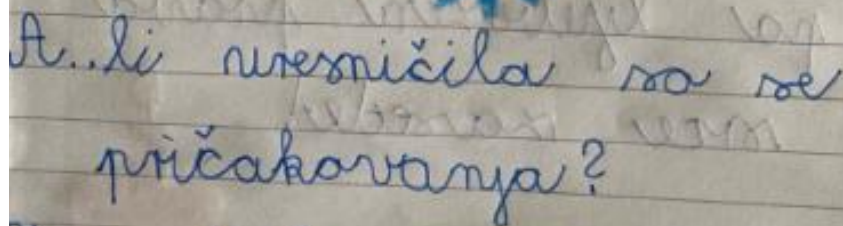 A..li uresničila so se
pričakovanja?